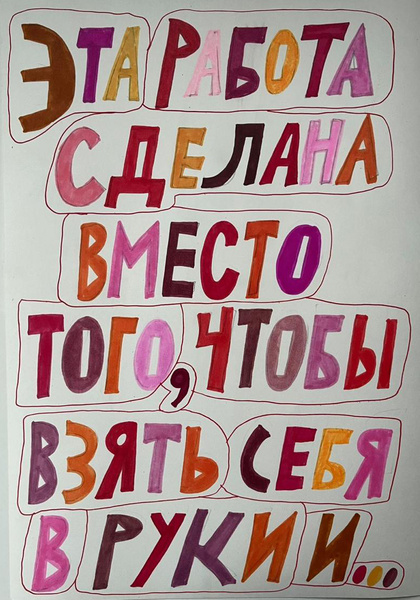 ЭТА РАБОТА
СДЕЛАНА
ВМЕСТО
ТОГО, ЧТОБЫ
ВЗЯТЬ СЕБЯ
В РУКИ И...